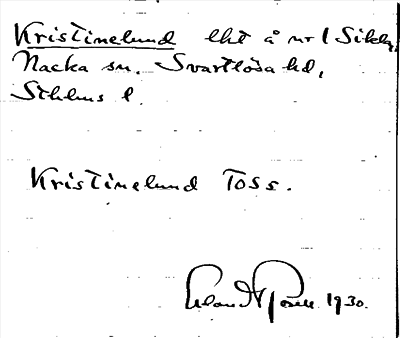 Kristinelund lht å nr 1 Sickla,
Nacka sn. Svartlösa hd,
Sthlms l.
Kristinelund Toss.
Erland Rosell 1930.